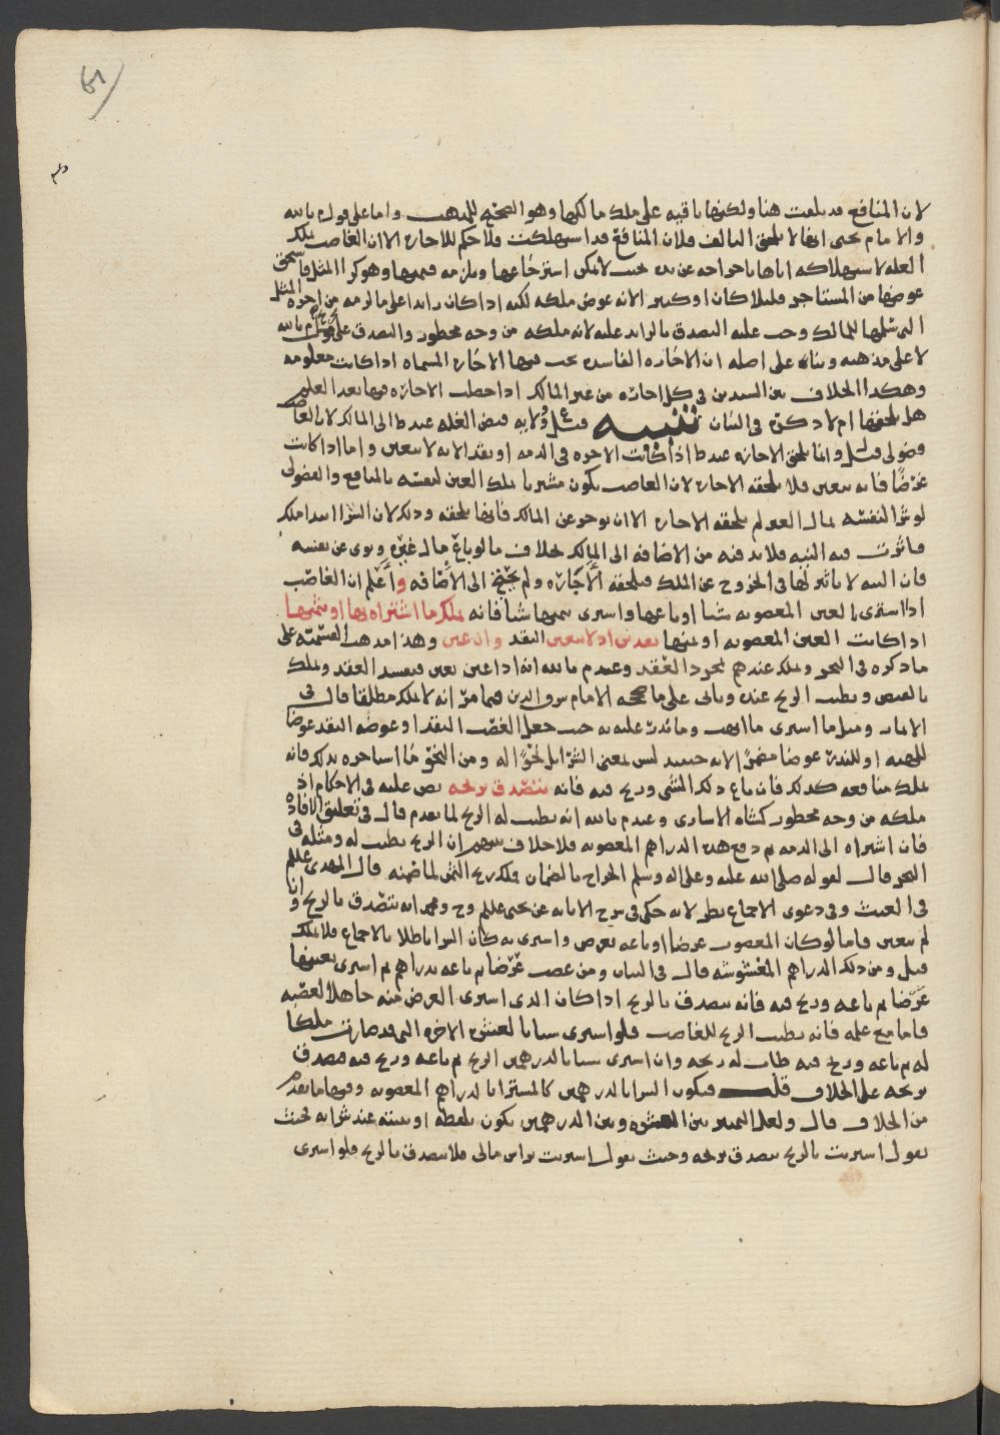 لان المنافع قد تلفت هنا ولكنها باقيه على ملك مالكها وهو الصحيح للمذهب واما على قول م بالله
والامام يحيى انها لا تلحق التالف فلان المنافع قد استهلكت فلا حكم للاجازه الا ان الغاصب يملك
العله لاستهلاكه اياها باخراجه عن يده بحيث لا يمكن استرجاعها ويلزمه قيمتها وهو كرا المثل فاستحق
عوضها من المستاجر قليلا كان او كثيرا لانه عوض ملكه لكنه اذا كان زايدا على ما لزمه من اجره المثل
التى سلمها للمالك وجب عليه التصدق بالزايد عليه لانه ملكه من وجه محظور والتصدق على قول م بالله
لا على مذهبه وبناه على اصله ان الاجاره الفاسده يجب فيها الاجاره المسماه اذا كانت معلومه
وهكذا الخلاف بين السيدين فى كل اجازه من غير المالك اذا حصلت الاجازه فيها بعد العلم
هل تلحقها ام لا ذكره فى البيان تنبيه قيل ولايه قبض الغله عند ط الى المالك لان الغاصب
فضولى قيل وانما تلحق الاجازه عند ط اذا كانت الاجره فى الذمه او نقدا لانه لا يتعين واما اذا كانت
عرضا فانه يتعين فلا تلحقه الاجازه لان الغاصب يكون مشتريا تلك العين لنفسه بالمنافع والفضولى
لو شرا لنفسه بمال الغير لم تلحقه الاجازه الا ان يوجر عن المالك فانها تلحقه وذلك لان الشرا ابتدا ملك
فاثرت فيه النيه فلا بد فيه من الاضافه الى المالك بخلاف ما لو باع مال غيره ونوى عن نفسه
فان النيه لا تاثير لها فى الخروج عن الملك فتلحقه الاجازه ولم يحتج الى الاضافه واعلم ان الغاصب
اذا استرى بالعين المغصوبه شيا او باعها واسترى بثمنها شيا فانه يملك ما اشتراه بها او بثمنها
اذا كانت العين المغصوبه او ثمنها نقدين اذ لا يتعين النقد وان عين وهذا مذهب القسميه على
ما ذكره فى البحر ويملك عندهم بمجرد العقد وعند م بالله انه اذا عين تعين فيفسد العقد ويملك
بالقبض ويطيب الربح عنده وياتى على ما صححه الامام شرف الدين فيما مر انه لا يملك مطلقا قال فى
الاثمار ومثل ما استرى ما اتهب وما نذر عليه به حيث جعل الغصب النقد او عوضه النقد عوضا
للهبه او للنذر عوضا مضمرا لانه حينيذ ليس بمعنى الشرا بل نحوا له ومن النحو ما استاجره بذلك فانه
يملك منافعه كذلك فان باع ذلك المشترى وربح فيه فانه يتصدق بربحه نص عليه فى الاحكام اذ
ملكه من وجه محظور كشاه الاسارى وعند م بالله انه يطيب له الربح لما تقدم قال فى تعليق الافاده
فان اشتراه الى الذمه ثم دفع هذه الدراهم المغصوبه فلا خلاف بينهم ان الربح يطيب له ومثله فى
البحر قال لقوله صلى الله عليه وعلى اله وسلم الخراج بالضمان فملك ربح الثمن لما ضمنه قال المهدى علم
فى الغيث وفى دعوى الاجماع نظر لانه حكى فى شرح الابانه عن يحيى علم وح ومحمد انه يتصدق بالربح وان
لم يتعين فاما لو كان المغصوب عرضا او باعه بعرض واسترى به كان الشرا باطلا بالاجماع فلا يملك
قيل ومن ذلك الدراهم المغشوشه قال فى البيان ومن غصب عرضا ثم باعه بدراهم ثم استرى بعينها
عرضا ثم باعه وربح فيه فانه يتصدق بالربح اذا كان الذى استرى العرض منه جاهلا لغصبه
فاما مع علمه فانه يطيب الربح للغاصب فلو استرى شيا بالعشره الاخره التى قد صارت ملكا
له ثم باعه وربح فيه طاب له ربحه وان استرى شيا بالدرهمين الربح ثم باعه وربح فيه تصدق
بربحه على الخلاف قلت فيكون الشرا بالدرهمين كالمشترا بالدراهم المغصوبه وفيها ما تقدم
من الخلاف قال ولعل التمييز بين العشره وبين الدرهمين يكون بلفظه او بنيته عند شرايه بحيث
يقول استريت بالربح يتصدق بربحه وحيث يقول استريت براس مالى فلا يتصدق بالربح فلو استرى